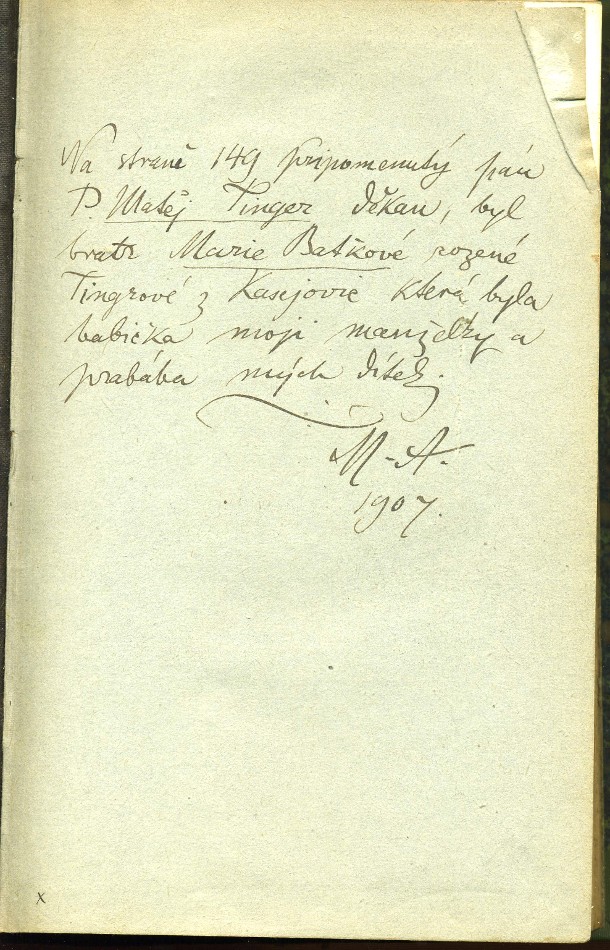 Na straně 149 připomenutý pán
P. Matěj Tinger děkan, byl
bratr Marie Baťkové rozené
Tingrové z Kasejovic která byla
babička moji manželky a
prabába mých dítek.
M-A.
1907.
x